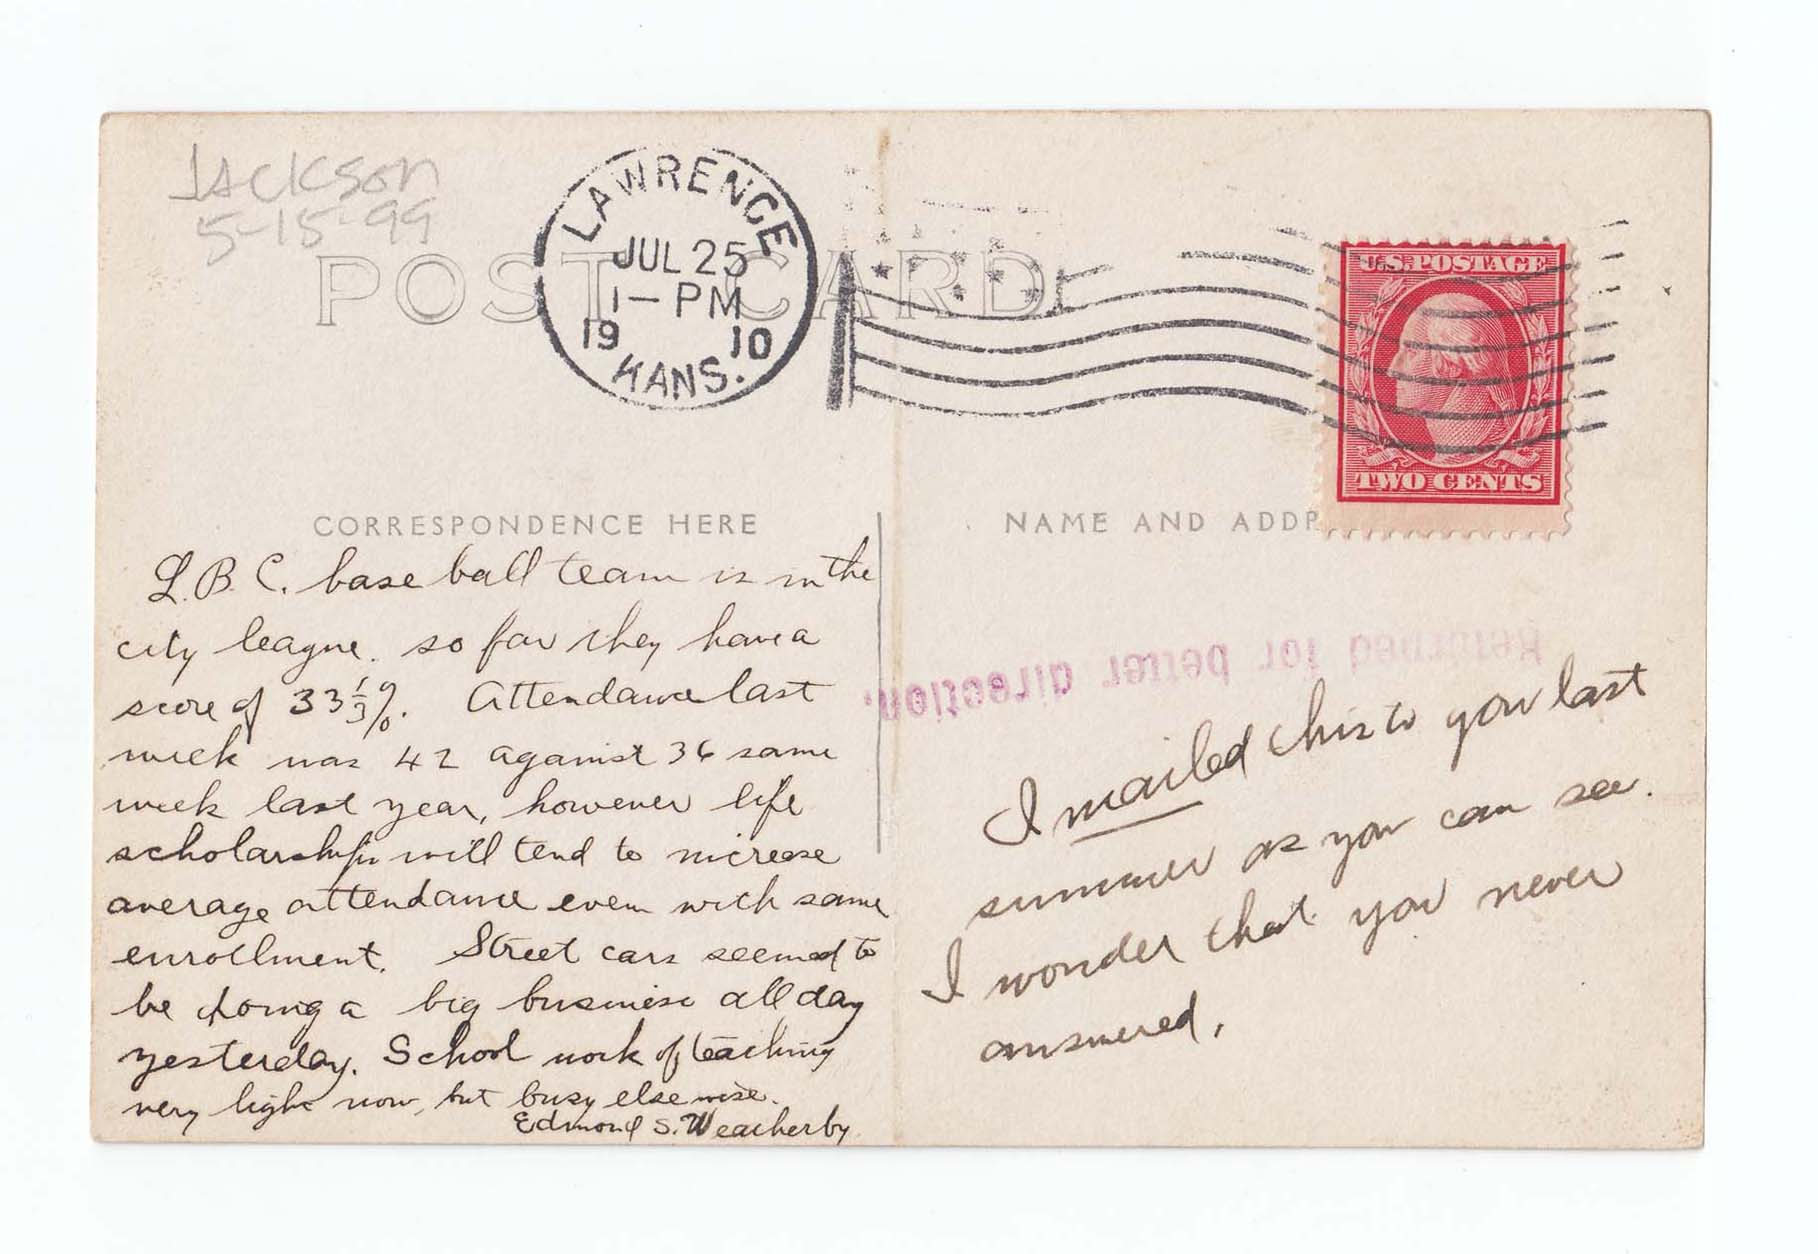 Jackson
5-15-99
LAWRENCE
JUL 25
1-PM
19 10
KANS.
POST CARD
U.S. POSTAGE
TWO CENTS
CORRESPONDENCE HERE
L.B.C. base ball team is in the
city league. so far they have a
score of 33 1/3 %. Attendance last
week was 42 against 36 same
week last year, however life
scholarships will tend to increase
average attendance even with same
enrollment. Street cars seemed to
be doing a big business all day
yesterday. School work of teaching
very light now, but busy elsewise.
Edmond S. Weatherby
NAME AND ADDR
Returned for better direction.
I mailed this to you last
summer as you can see.
I wonder that you never
answered.